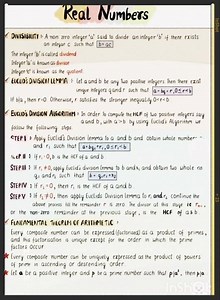 Real Numbers
DIVISIBILITY : A non zero integer 'a' said to divide an integer 'b' if there exists
an integer c such that b=ac
The integer 'b' is called dividend
Integer 'a' is known as divisor
Integer 'c' is known as the quotient
EUCLID'S DIVISION LEMMA : let a and b be any two positive integers. Then there exist
unique integers q and r such that a=bq+r, 0≤r<b
If b|a, then r=0. Otherwise, r satisfies the stronger inequality 0<r<b
EUCLID'S DIVISION ALGORITHM : In order to compute the HCF of two positive integers say
a and b, with a>b by using Euclid's Algorithm we
follow the following steps
STEP I Apply Euclid's Division lemma to a and b and obtain whole number
and r, such that
STEP II If r₁=0, b is the HCF of a and b
STEP III If r₁≠0, apply Euclid's division lemma to b and r₁ obtain two whole
such that
STEP IV If r₂=0, then r₁ is the HCF of a and b
STEP V If r₂≠0, then apply Euclid's Division lemma to r₁ and r₂ continue the
above process till the remainder r n is zero. The divisor at this stage
or the non-zero remainder of the previous stage, is the HCF of a & b
FUNDAMENTAL THEOREM OF ARITHMETIC :
Every composite number can be expressed (factorised) as a product of primes,
and this factorisation is unique except for the order in which the prime
factors occur
Every composite number can be uniquely expressed as the product of powers
of primes in ascending or descending order.
let a be a positive integer and p be a prime number such that p|a², then p|a